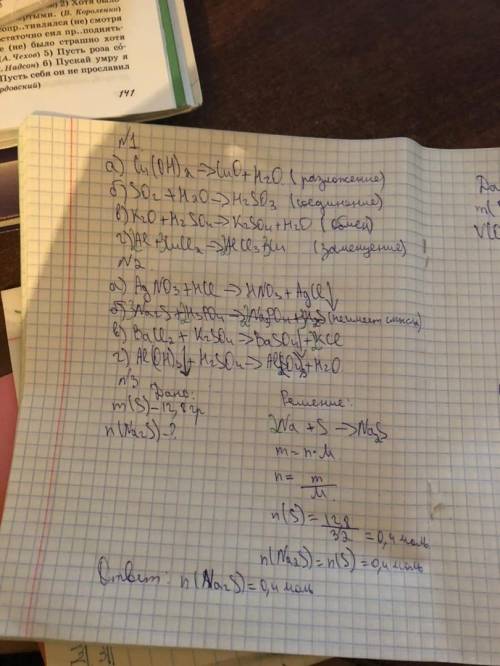 2) Хотя было
ертыми. (В. Короленко)
сопр..тивлялся (не) смотря
статочно сил пр..поднять-
е (не) было страшно хотя
А. Чехов) 5) Пусть роза со-
Надсон) 6) Пускай умру я
Пусть себя он не прославил
рдовский)
141
№1
а) Cu(OH)2 → CuO + H2O (разложение)
б) SO2 + H2O → H2SO3 (соединение)
в) K2O + H2SO4 → K2SO4 + H2O (обмен)
г) Al + CuCl2 → AlCl3 Cu (замещение)
№2
а) AgNO3 + HCl → HNO3 + AgCl↓
б) 3Na2S + 2H3PO4 → 2Na3PO4 + 3H2S (не имеет смысла)
в) BaCl2 + K2SO4 → BaSO4↓ + 2KCl
г) Al(OH)3↓ + H2SO4 → Al2(SO4)3 + H2O
№3
Дано:
m(S) – 12,8 гр
n(Na2S) – ?
Решение:
2Na + S → Na2S
m = n · M
n = m/M
n(S) = 12,8/32 = 0,4 моль
n(Na2S) = n(S) = 0,4 моль
Ответ: n(Na2S) = 0,4 моль
Да
m(
V(